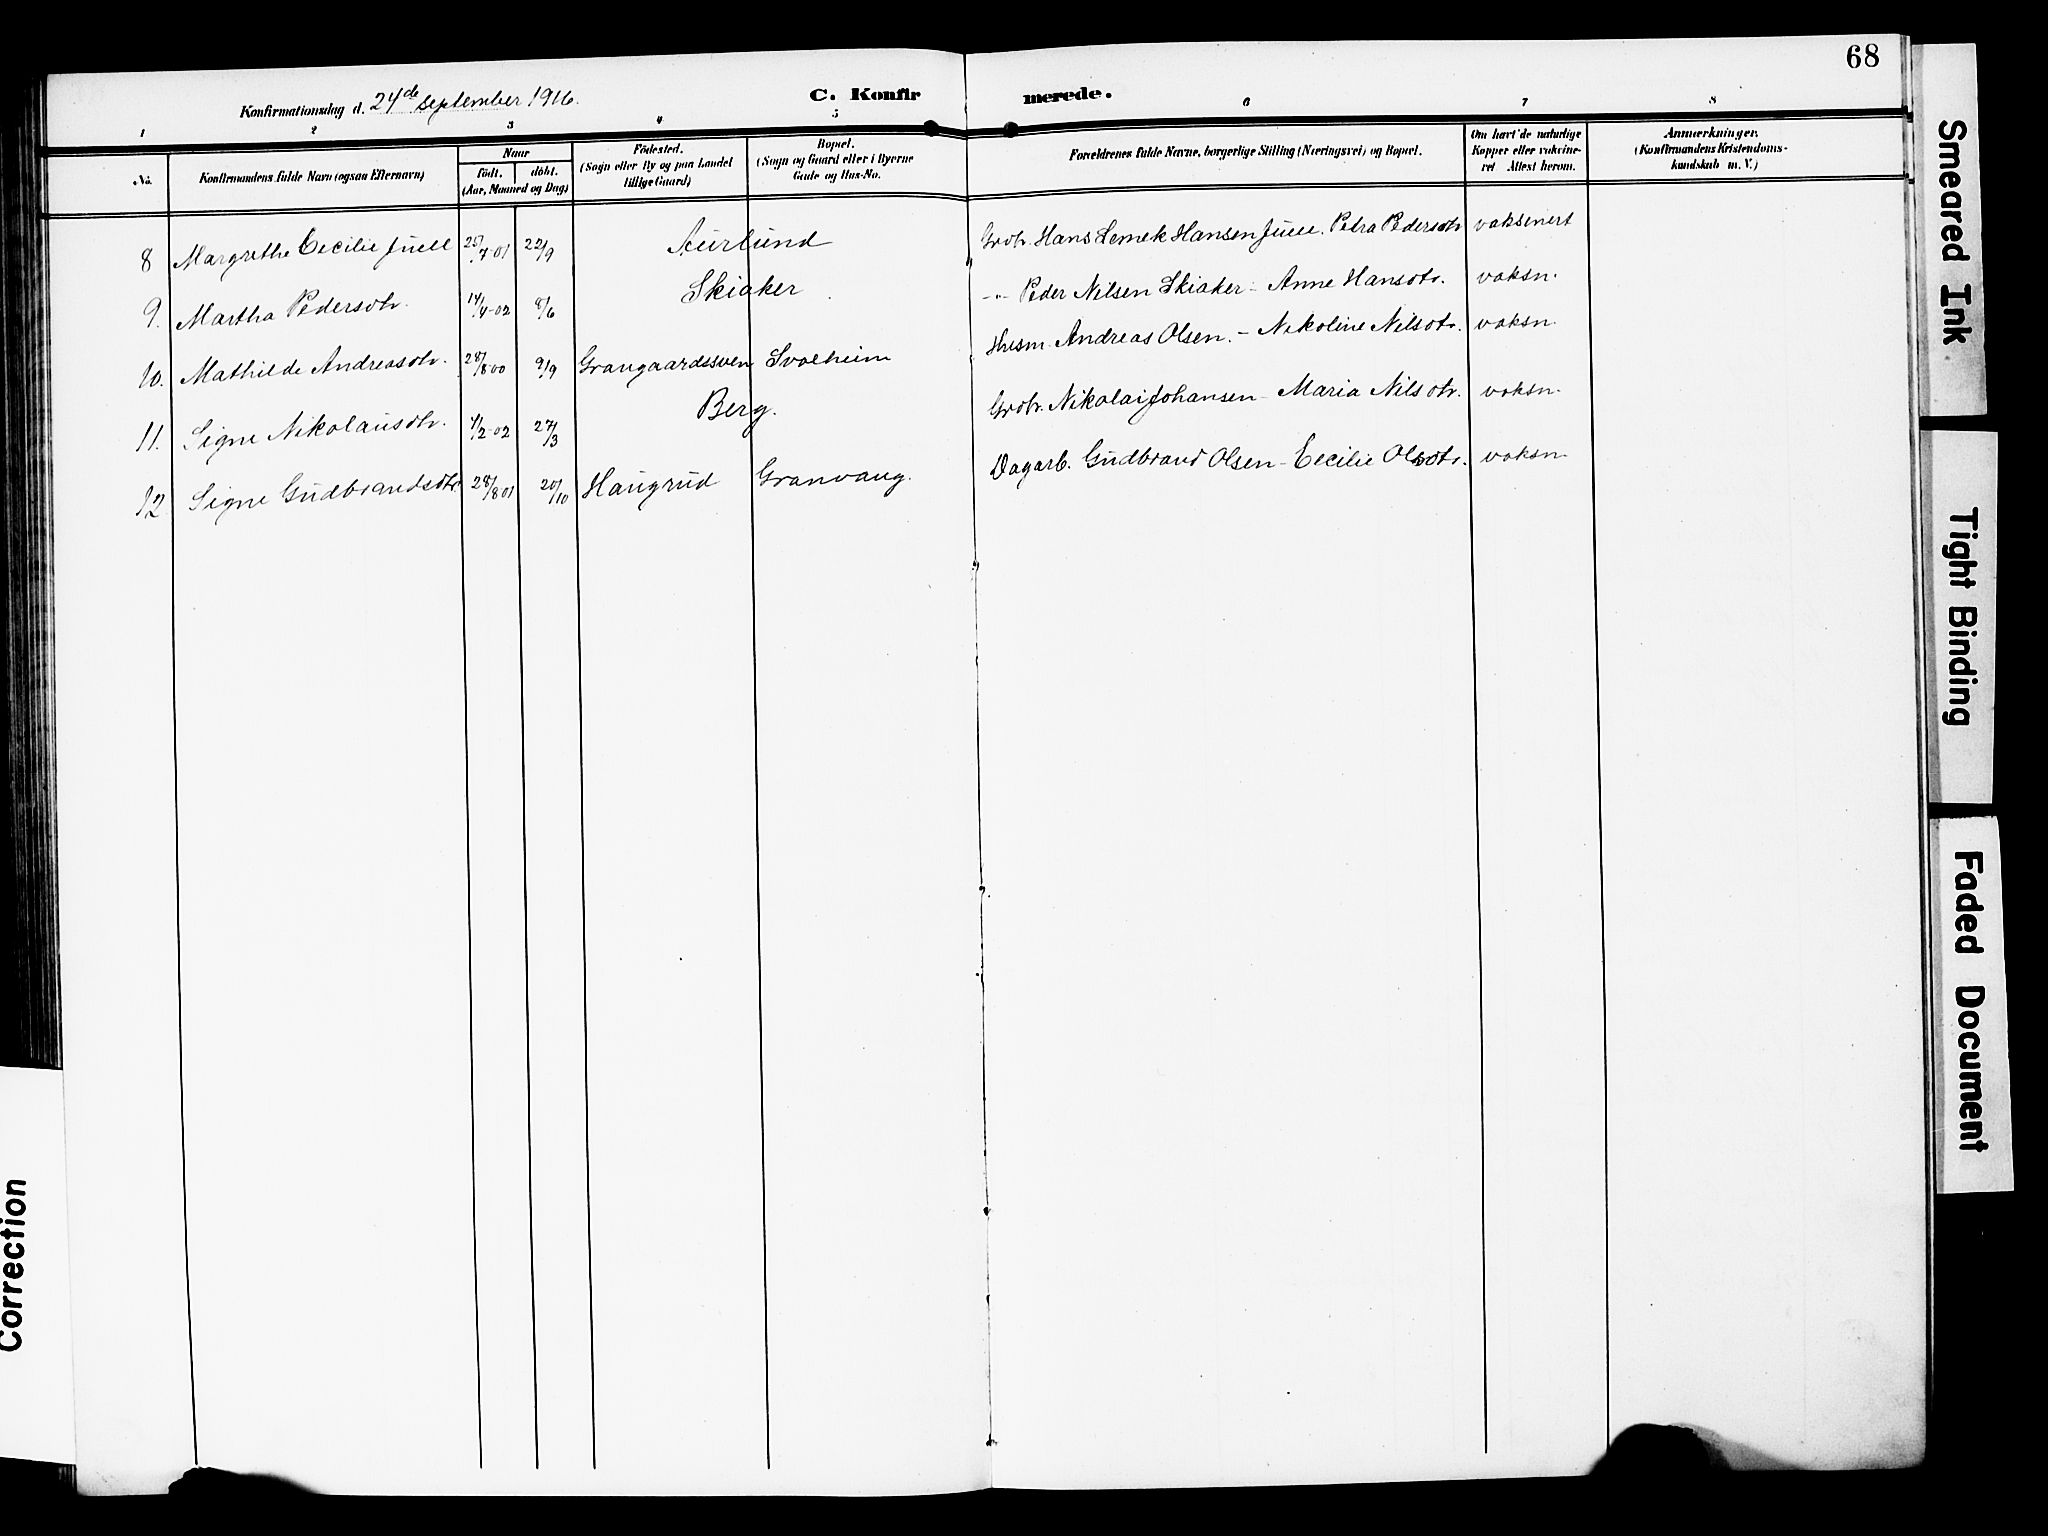 68
Konfirmationsdag d. 24de september 1916. C. Konfirmerede.
1 2 3 4 5 6 7 8
No. Konfirmandens fulde Navn (ogsaa Efternavn) Naar födt. döbt. (Aar, Maaned og Dag) Födested. (Sogn eller By og paa Landet tillige Gaard) Bopæl. (Sogn og Gaard eller i Byerne Gade og Hus-No. Forældrenes fulde Navne, borgerlige Stilling (Næringsvei) og Bopæl. Om havt de naturlige Kopper eller vakcineret Attest herom. Anmærkninger. (Konfirmandens Kristendomskundskab m. V.)
8 Margrethe Cecilie Juell 25/7-01 22/9 Aurlund Grbr. Hans Lemek Hansen Juell. Petra Pedersdtr vaksinert
9. Martha Pedersdtr. 14/4-02 8/6 Skiaker -"- Peder Nilsen Skiaker - Anne Hansdtr. vaksn.
10. Mathilde Andreasdtr. 28/8 00 9/9 Grangaardssven Svalheim Husm. Andreas Olsen. - Nikoline Nilsdtr. vaksn.
11. Signe Nikolaisdtr. 4/2-02 27/3 Berg. Grbr. Nikolai Johansen - Maria Nilsdtr. vaksn.
12 Signe Gudbrandsdtr. 28/8 01 20/10 Haugrud Granvang. Dagarb. Gudbrand Olsen - Cecilie Olsdtr. vaksn.
Smeared Ink
Tight Binding
Faded Document
Correction